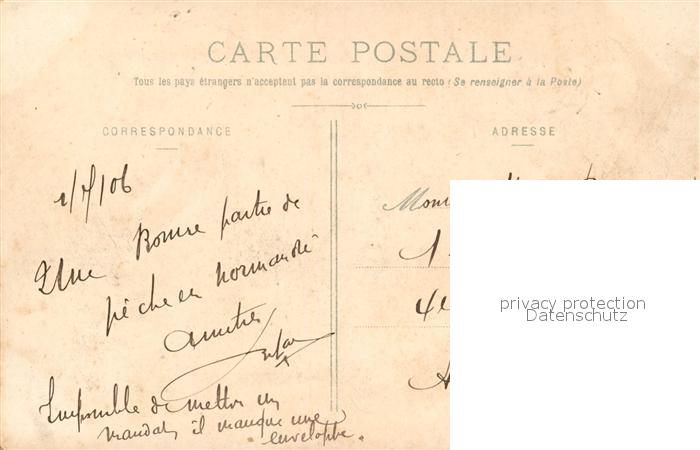 CARTE POSTALE
Tous les pays étrangers n'acceptent pas la correspondance au recto (Se renseigner à la Poste)
CORRESPONDANCE
ADRESSE
1/7/06
Une Bonne partie de
pêche en normandie
amitiés
Impossible de mettre un
mandat, il manque une
enveloppe.
privacy protection
Datenschutz